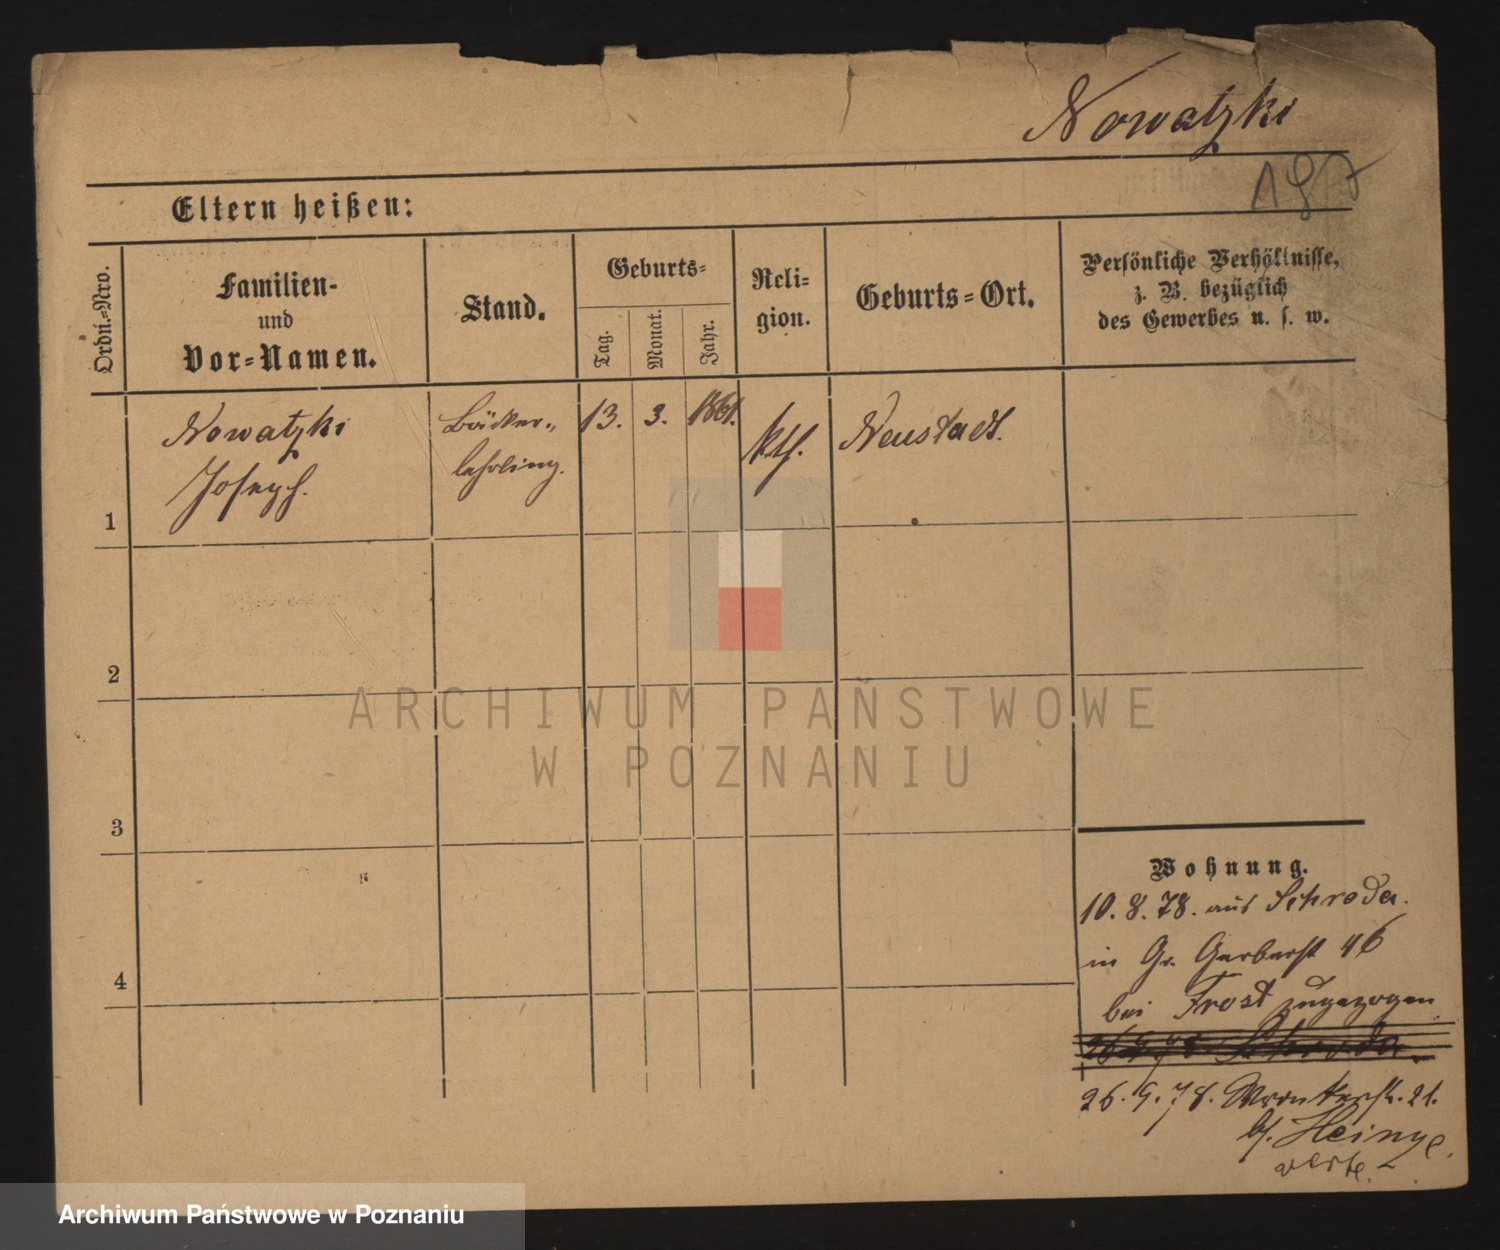 Nowatzki
187
Eltern heißen:
Ordn.-Nro.
Familien-
und
Vor-Namen.
Stand.
Geburts-
Tag.
Monat.
Jahr.
Reli-
gion.
Geburts-Ort.
Persönliche Verhältnisse,
z. B. bezüglich
des Gewerbes u. s. w.
1
Nowatzki
Joseph.
Bäcker-
lehrling.
13.
3.
1861.
kth.
Neustadt.
2
3
4
Wohnung.
10. 8. 78. aus Schroda.
in Gr. Gerberst 46
bei Frost zugezogen
26. 9. 78. Schroda.
26. 9. 78. Wronkerstr. 21.
b/. Heinze.
verte.
ARCHIWUM PAŃSTWOWE
W POZNANIU
Archiwum Państwowe w Poznaniu